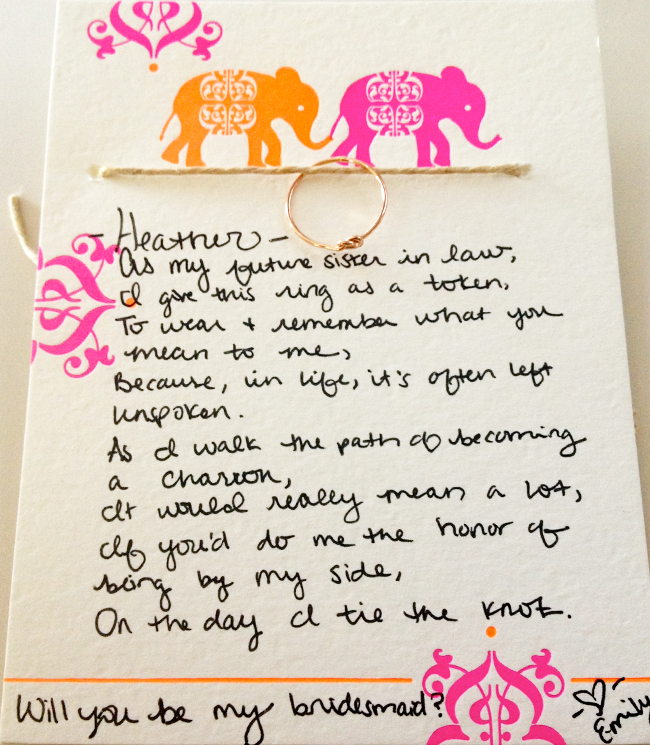 - Heather -
As my future sister in law,
I give this ring as a token,
To wear + remember what you
mean to me,
Because, in life, it's often left
unspoken.
As I walk the path of becoming
a Charron,
It would really mean a lot,
If you'd do me the honor of
being by my side,
On the day I tie the knot.
Will you be my bridesmaid?
Emily